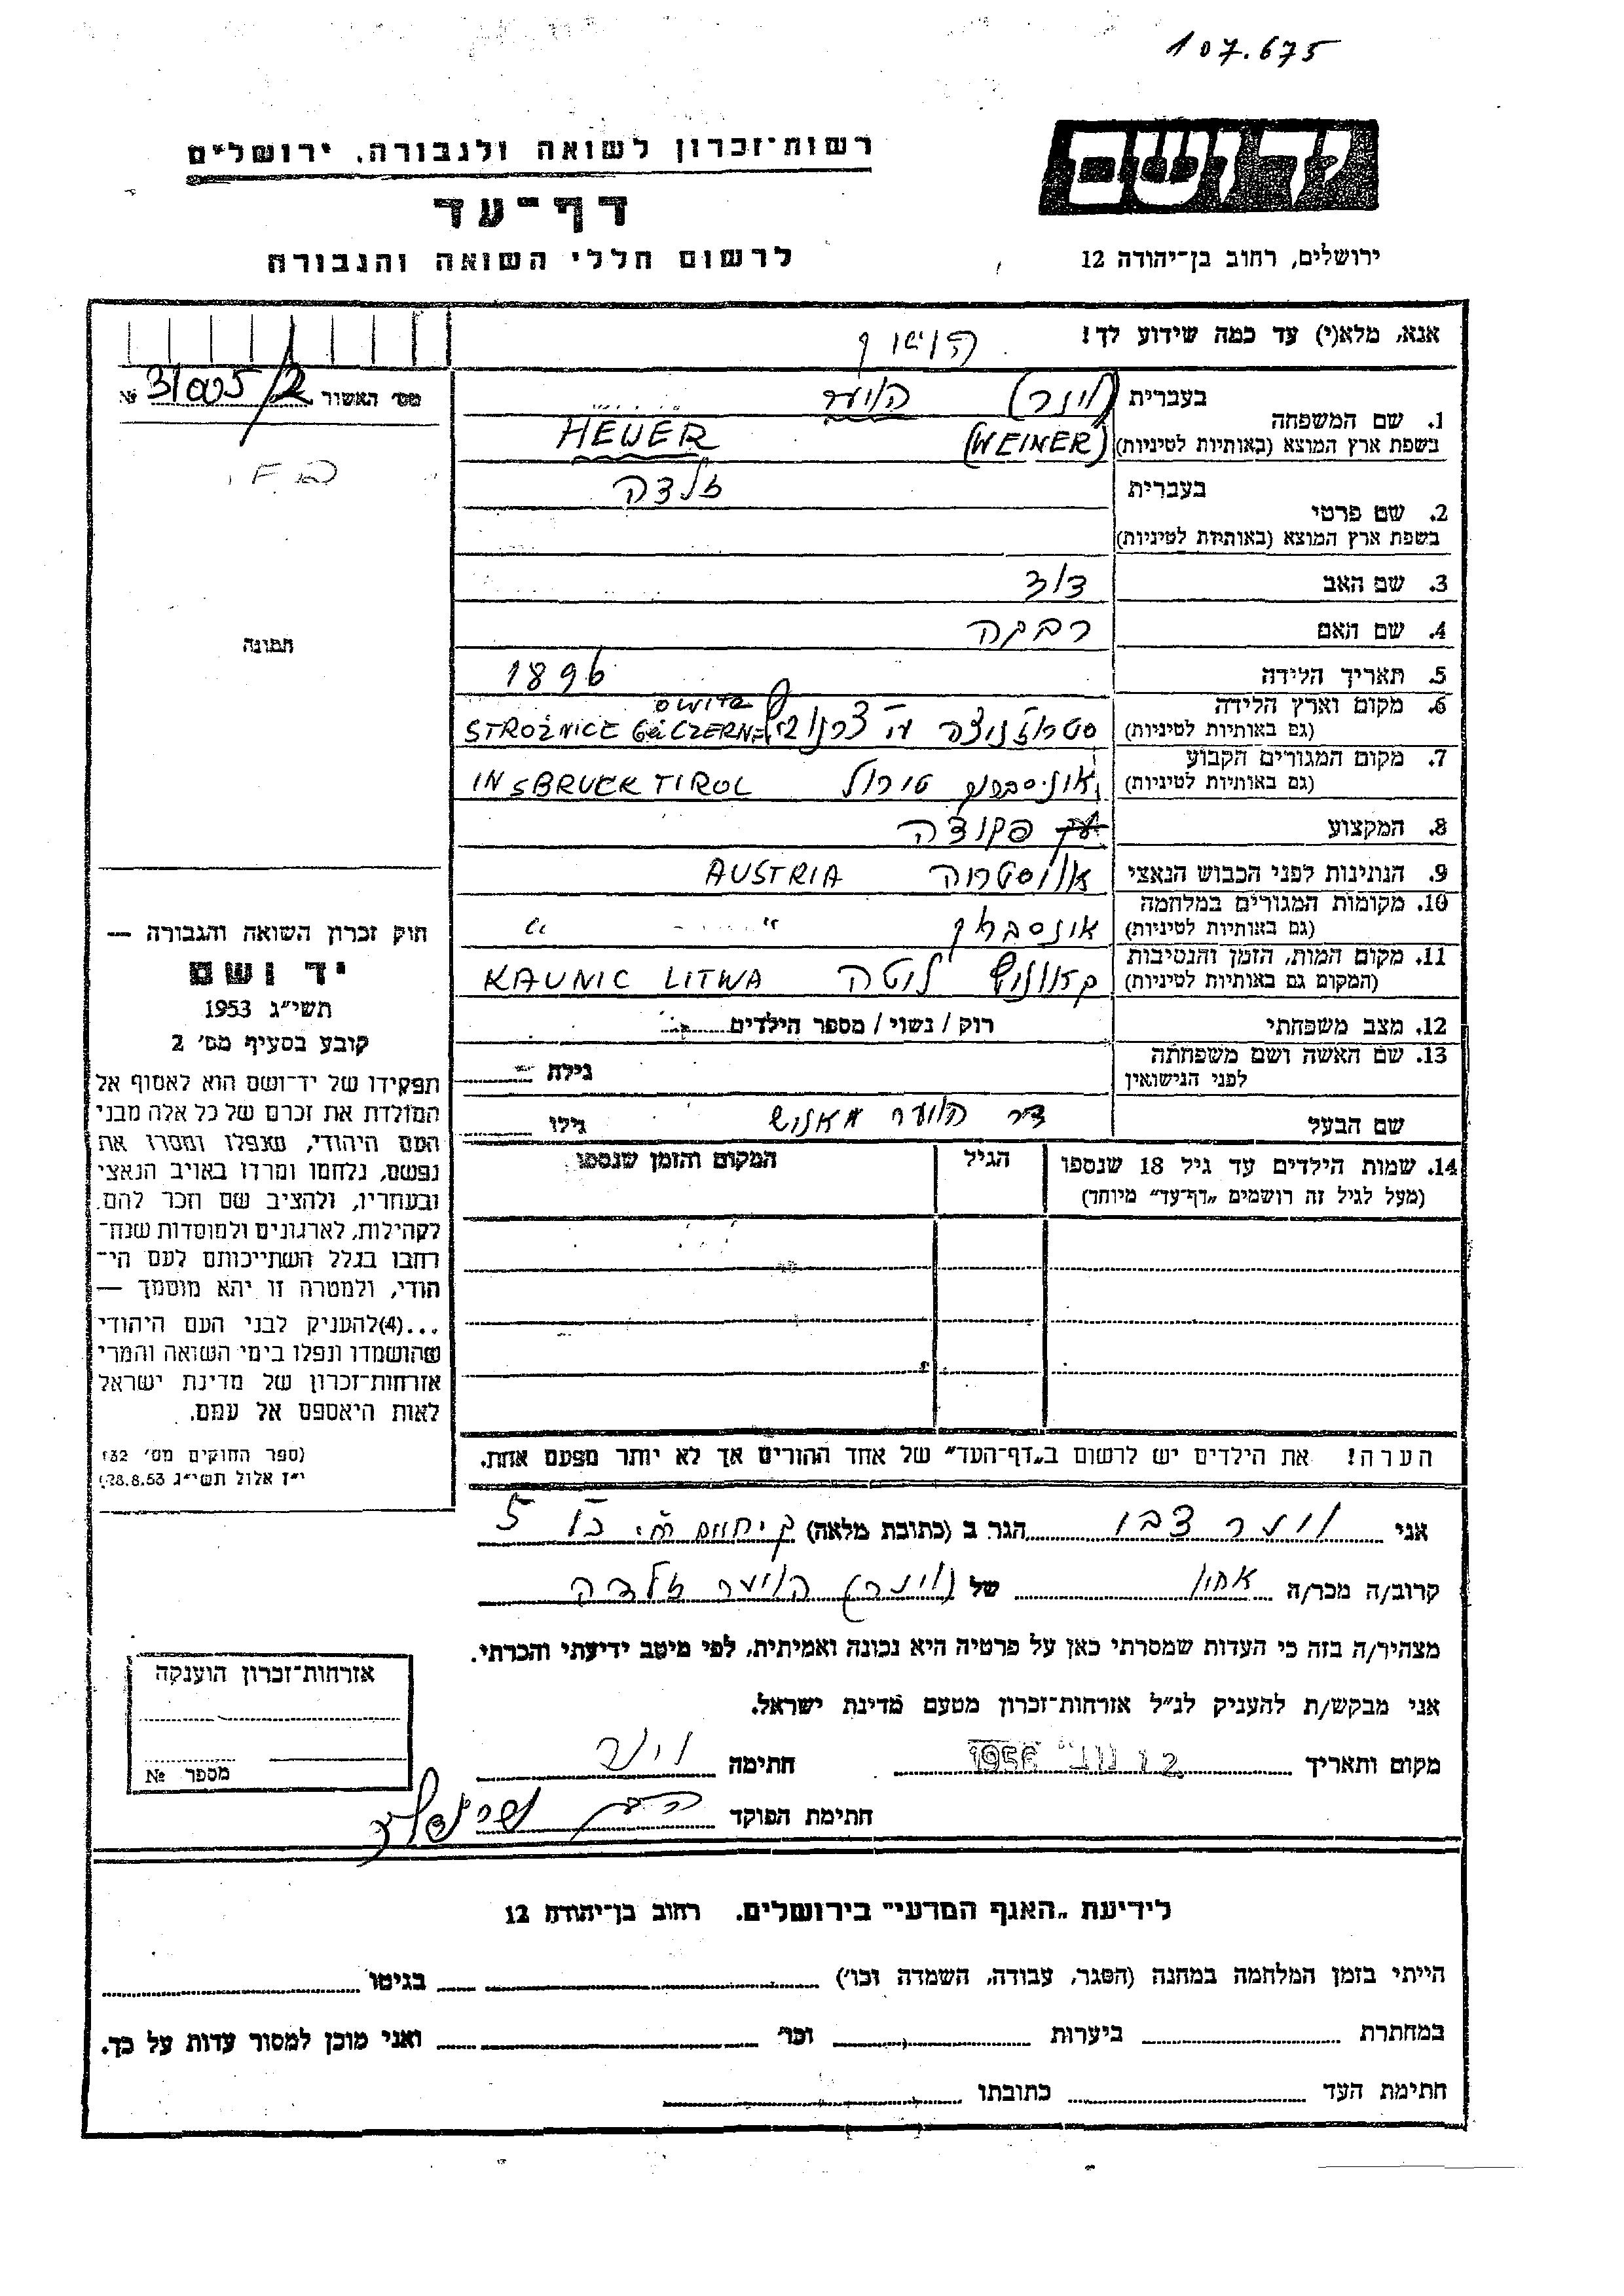 107.675
רשות־זכרון לשואה ולגבורה, ירושלים
יד ושם
דף־עד
לרשום חללי השואה והגבורה
ירושלים, רחוב בן־יהודה 12
אנא, מלא(י) עד כמה שידוע לך!
מס׳ האשור 31005/2 №
1. שם המשפחה
בעברית (וינר) הויער
בשפת ארץ המוצא (באותיות לטיניות) (WEINER) HEUER
2. שם פרטי
בעברית זלדה
בשפת ארץ המוצא (באותיות לטיניות)
3. שם האב דוד
4. שם האם רבקה
5. תאריך הלידה 1896
6. מקום וארץ הלידה
(גם באותיות לטיניות) STROŽNICE CZERN
7. מקום המגורים הקבוע
(גם באותיות לטיניות) טירול INSBRUCK TIROL
8. המקצוע פקידה
9. הנתינות לפני הכבוש הנאצי אוסטריה AUSTRIA
10. מקומות המגורים במלחמה
(גם באותיות לטיניות) אינסברוק " "
11. מקום המות, הזמן והנסיבות
(המקום גם באותיות לטיניות) ליטה KAUNIC LITWA
12. מצב משפחתי רוק / נשוי / מספר הילדים
13. שם האשה ושם משפחתה
לפני הנישואין גילה
שם הבעל ד״ר הויער גילו
14. שמות הילדים עד גיל 18 שנספו
(מעל לגיל זה רושמים „דף־עד” מיוחד)
הגיל
המקום והזמן שנספו
הערה! את הילדים יש לרשום ב„דף־העד” של אחד ההורים אך לא יותר מפעם אחת.
תמונה
חוק זכרון השואה והגבורה —
יד ושם
תשי״ג 1953
קובע בסעיף מס׳ 2
תפקידו של יד־ושם הוא לאסוף אל
המולדת את זכרם של כל אלה מבני
העם היהודי, שנפלו ומסרו את
נפשם, נלחמו ומרדו באויב הנאצי
ובעוזריו, ולהציב שם וזכר להם,
לקהילות, לארגונים ולמוסדות שנח־
רחבו בגלל השתייכותם לעם הי־
הודי, ולמטרה זו יהא מוסמך —
...(4)להעניק לבני העם היהודי
שהושמדו ונפלו בימי השואה והמרי
אזרחות־זכרון של מדינת ישראל
לאות היאספם אל עמם.
(ספר החוקים מס׳ 132
י״ז אלול תשי״ג 28.8.53)
אני וינר צבי הגר ב (כתובת מלאה) 5
קרוב/ה מכר/ה של (וינר) הויער זלדה
מצהיר/ה בזה כי העדות שמסרתי כאן על פרטיה היא נכונה ואמיתית, לפי מיטב ידיעתי והכרתי.
אני מבקש/ת להעניק לנ״ל אזרחות־זכרון מטעם מדינת ישראל.
מקום ותאריך 1956 חתימה וינר
חתימת הפוקד
אזרחות־זכרון הוענקה
מספר №
לידיעת „האגף המדעי” בירושלים. רחוב בן־יהודה 12
הייתי בזמן המלחמה במחנה (הסגר, עבודה, השמדה וכו׳) בגיטו
במחתרת ביערות וכו׳ ואני מוכן למסור עדות על כך.
חתימת העד כתובתו